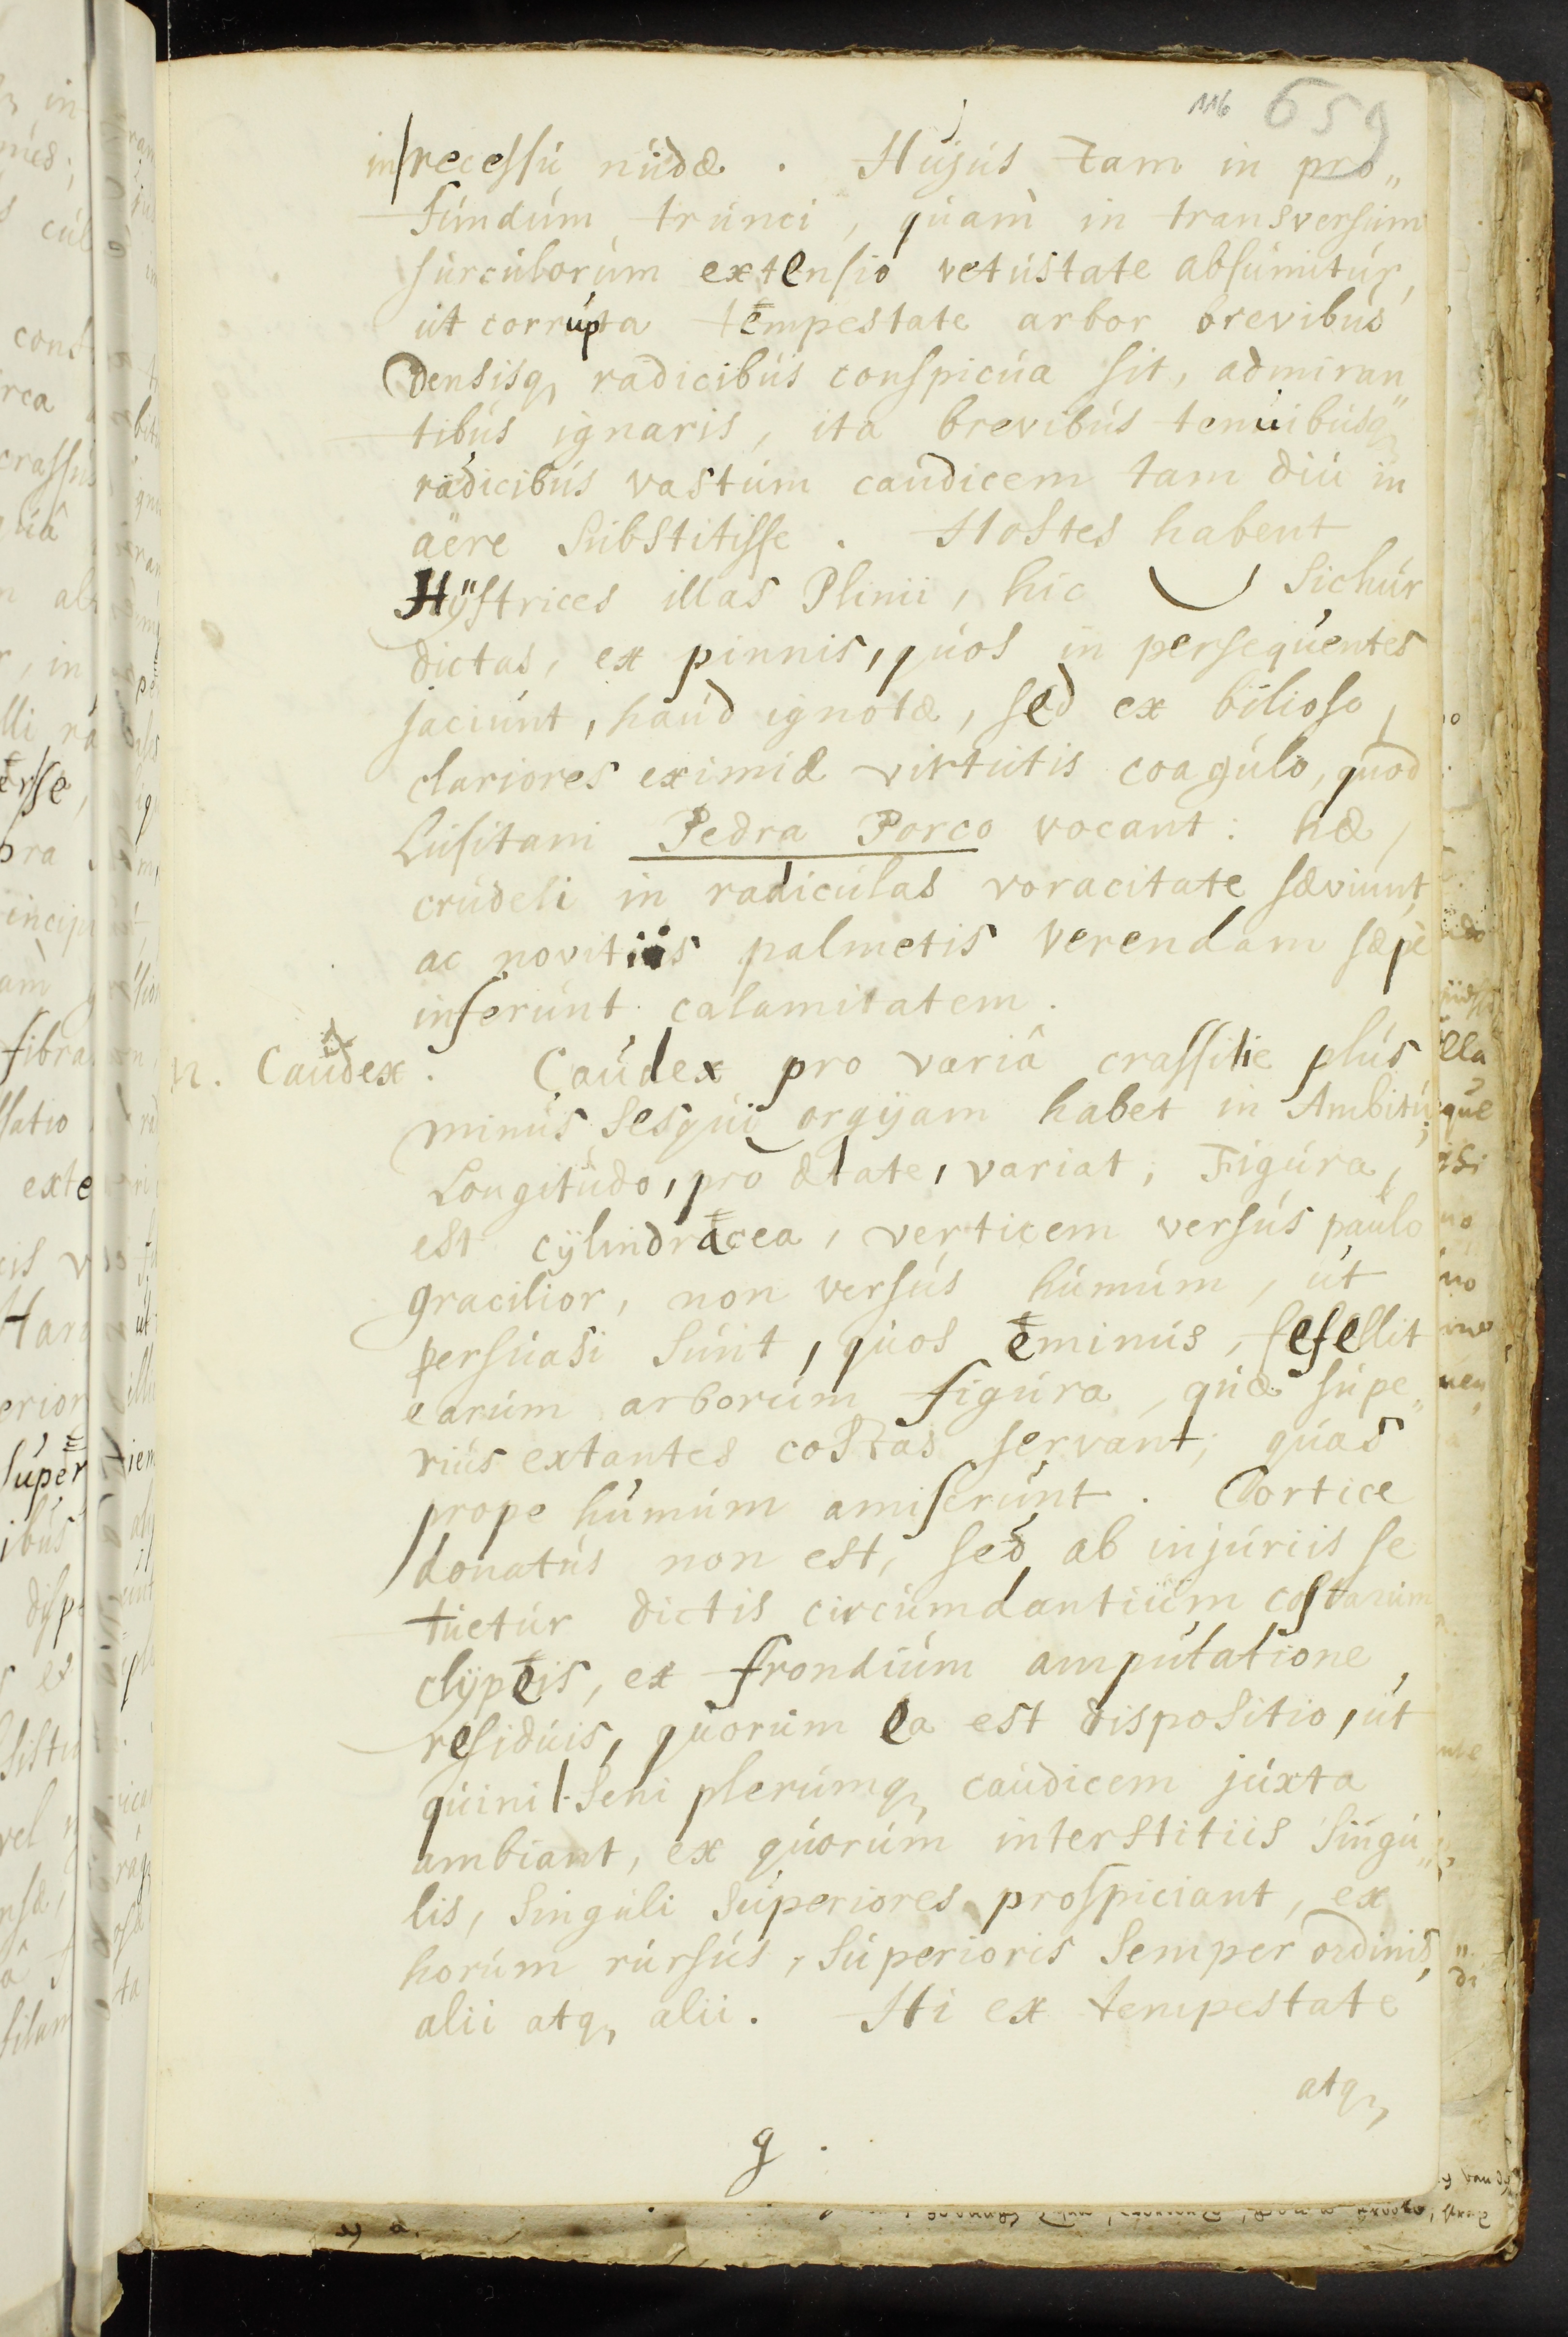 116 659
in recessu nudæ. Hujus tam in pro„
fundum trunci, quam in transversum
surculorum extensio vetustate absumitur,
ut corrupta tempestate arbor brevibus
densisq, radicibus conspicua sit, admiran„
tibus ignaris, ita brevibus tenuibusq,
radicibus vastum caudicem tam diu in
aëre substitisse. Hostes habent
Hÿstrices illas Plinii, hic Sichur
dictas, ex pinnis, quos in persequentes
jaciunt, haud ignotæ, sed ex bilioso,
clariores eximiæ virtutis coagulo, quod
Lusitani Pedra Porco vocant: hæ,
crudeli in radiculas voracitate sæviunt,
ac novitiis palmetis verendam sæpè
inferunt calamitatem.
n. Caudex. Caudex pro variâ crassitie plus
minus sesqui orgÿam habet in Ambitu;
Longitudo, pro ætate, variat; Figura,
est cÿlindracea, verticem versus paulo
gracilior, non versus humum, ut
persuasi sunt, quos eminus, fefellit
earum arborum figura, quæ supe„
rius extantes costas servant; quas
prope humum amiserunt. Cortice
donatus non est, sed ab injuriis se
tuetur dictis circumdantium costarum
clÿpeis, ex frondium amputatione,
residuis, quorum ea est dispositio, ut
quini l. seni plerumq, caudicem juxta
ambiant, ex quorum interstitiis singu„
lis, singuli superiores prospiciant, ex
horum rursus, superioris semper ordinis,
alii atq, alii. Hi ex tempestate
atq,
g.